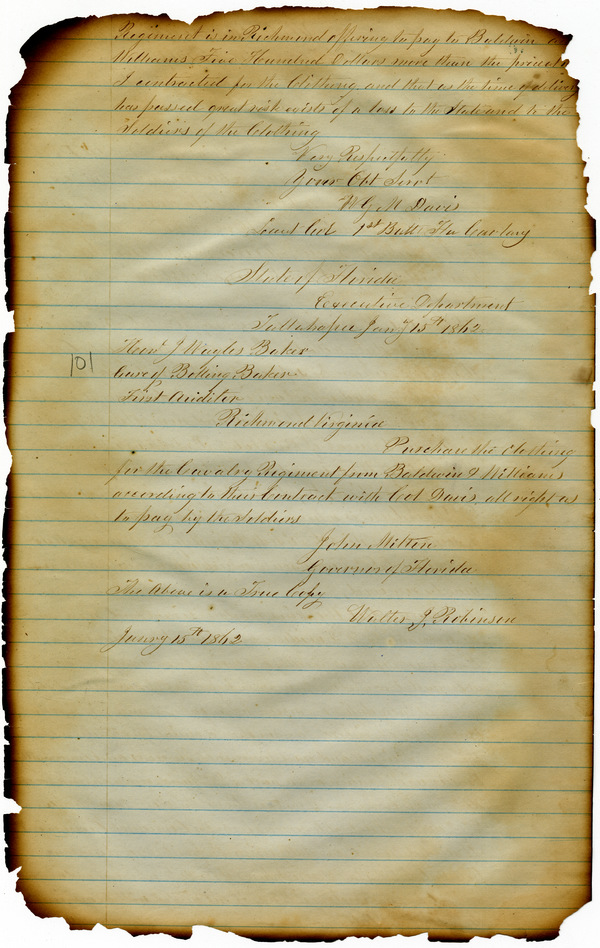 Regiment is in Richmond offering to pay to Baldwin
Williams Five Hundred Dollars more than the price at
I contracted for the Clothing, and that as the time of delivery
has passed great risk exists of a loss to the State and to the
Soldiers of the Clothing
Very Respectfully
Your Obt Servt
W G M Davis
Lieut Col 1st Batt Fla Cavalry
State of Florida
Executive Department
Tallahassee Jany 15th 1862
Hon J Wayles Baker
Care of Bolling Baker
First Auditor
Richmond Virginia
101
Purchase the Clothing
for the Cavalry Regiment from Baldwin & Williams
according to their Contract with Col Davis, all right as
to pay by the Soldiers
John Milton
Governor of Florida
The Above is a True Copy
Walter J. Robinson
Janry 15th 1862